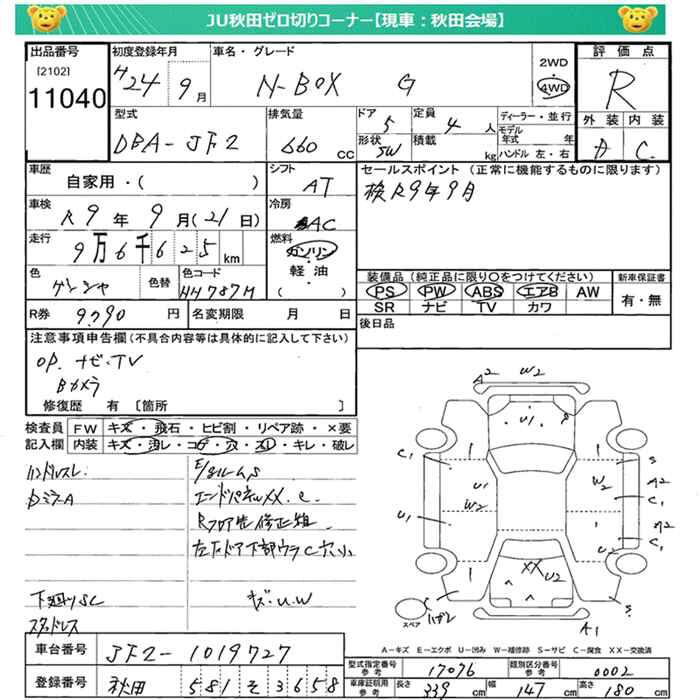 JU秋田ゼロ切りコーナー【現車：秋田会場】
出品番号
[2102]
11040
初度登録年月
H24 9月
車名・グレード
N-BOX G
2WD
4WD
評価点
R
外装 内装
A C
型式
DBA-JF2
排気量
660 CC
ドア
5
形状
5W
定員
4 人
積載
kg
ディーラー・並行
モデル年式 年
ハンドル 左・右
車歴
自家用・( )
シフト
AT
セールスポイント（正常に機能するものに限ります）
検R9年9月
車検
R 9年 9月(21日)
冷房
AC
走行
9万6千625km
燃料
ガソリン
軽油
( )
色
色替
色コード
NH787M
装備品（純正品に限り○をつけてください）
PS PW ABS エアB AW
SR ナビ TV カワ
新車保証書
有・無
R券
9790 円
名変期限 月 日
後日品
注意事項申告欄(不具合内容等は具体的に記入して下さい)
OP. ナビ・TV
Bカメラ
修復歴 有 〔箇所 〕
検査員記入欄
FW キズ・飛石・ヒビ割・リペア跡・×要
内装 キズ・汚レ・コゲ・穴・スレ・キレ・破レ
ハンドルスレ
エンドパネルXX.e.
Rフロア先修正箇
左右ドア下部ウラC
下廻りSC
キズ.U.W
スタッドレス
A2 W2
U1
C1
U1
W2
U1
W2
A2
C1
C1
XX U2
A1
スペア
A−キズ E−エクボ U−凹み W−補修跡 S−サビ C−腐食 XX−交換済
車台番号
JF2-1019727
登録番号
秋田 581 そ 3658
型式指定番号 参考
17076
類別区分番号 参考
0002
車庫証明用 参考
長さ 339 cm
幅 147 cm
高さ 180 cm